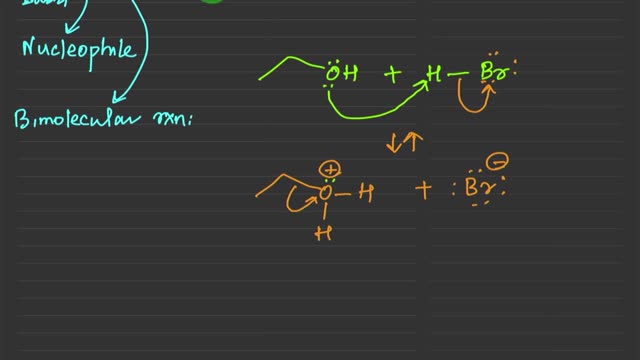 Nucleophile
Bimolecular rxn:
ÖH + H — Br:
⊕
O — H + :Br: ⊖
H